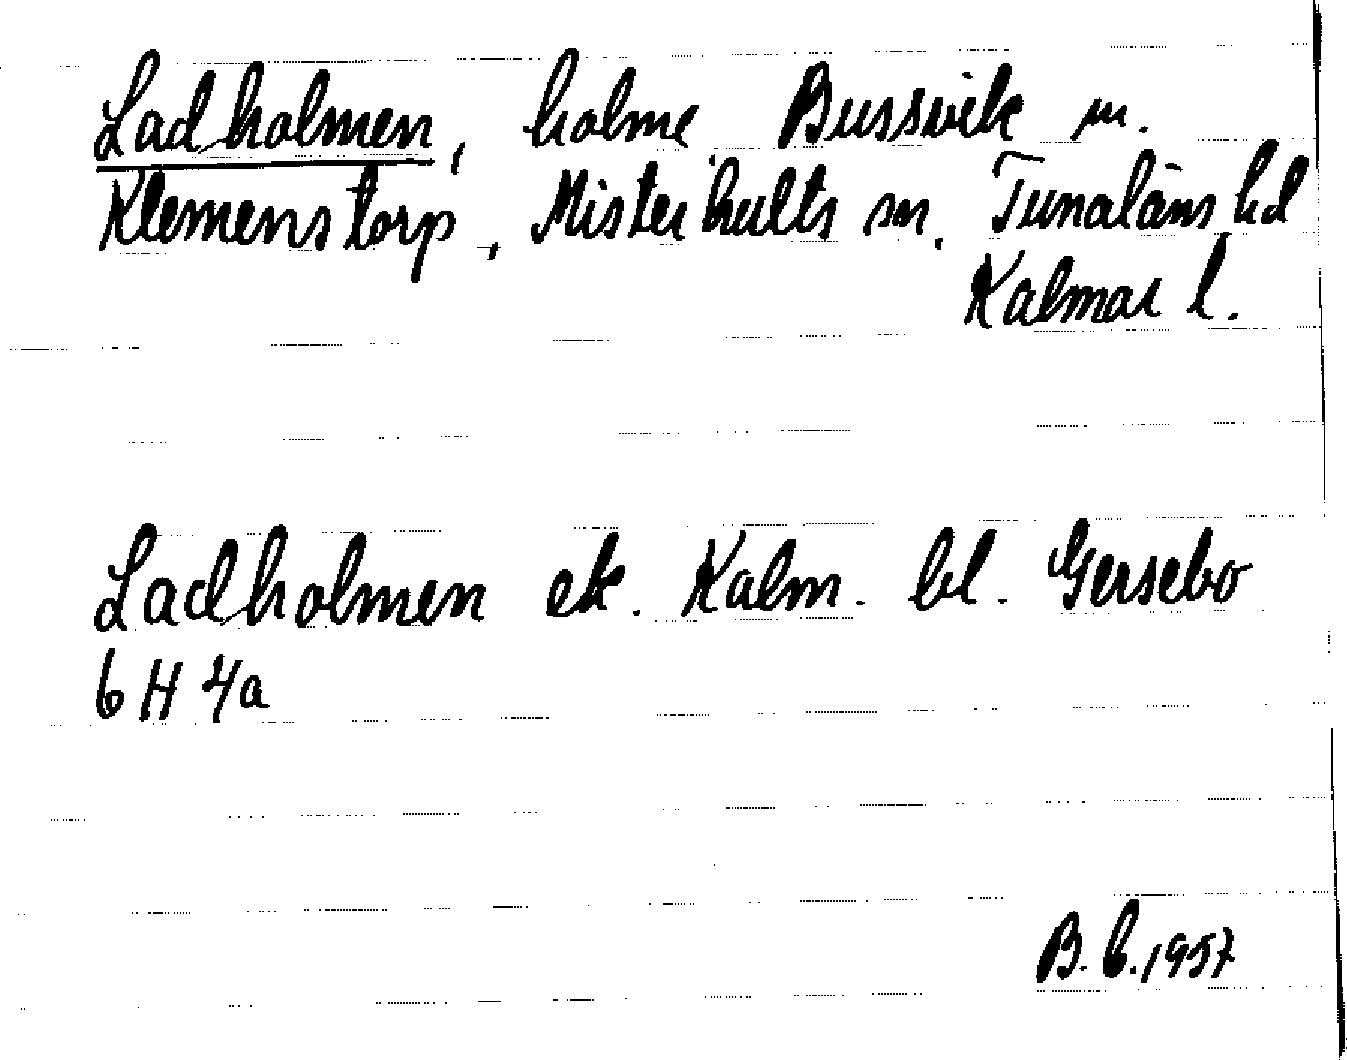 Ladholmen, holme Bussvik m.
Klemenstorp, Misterhults sn. Tunaläns hd
Kalmar l.
Ladholmen ek. Kalm. bl. Gersebo
6 H 4a
B.b.1957